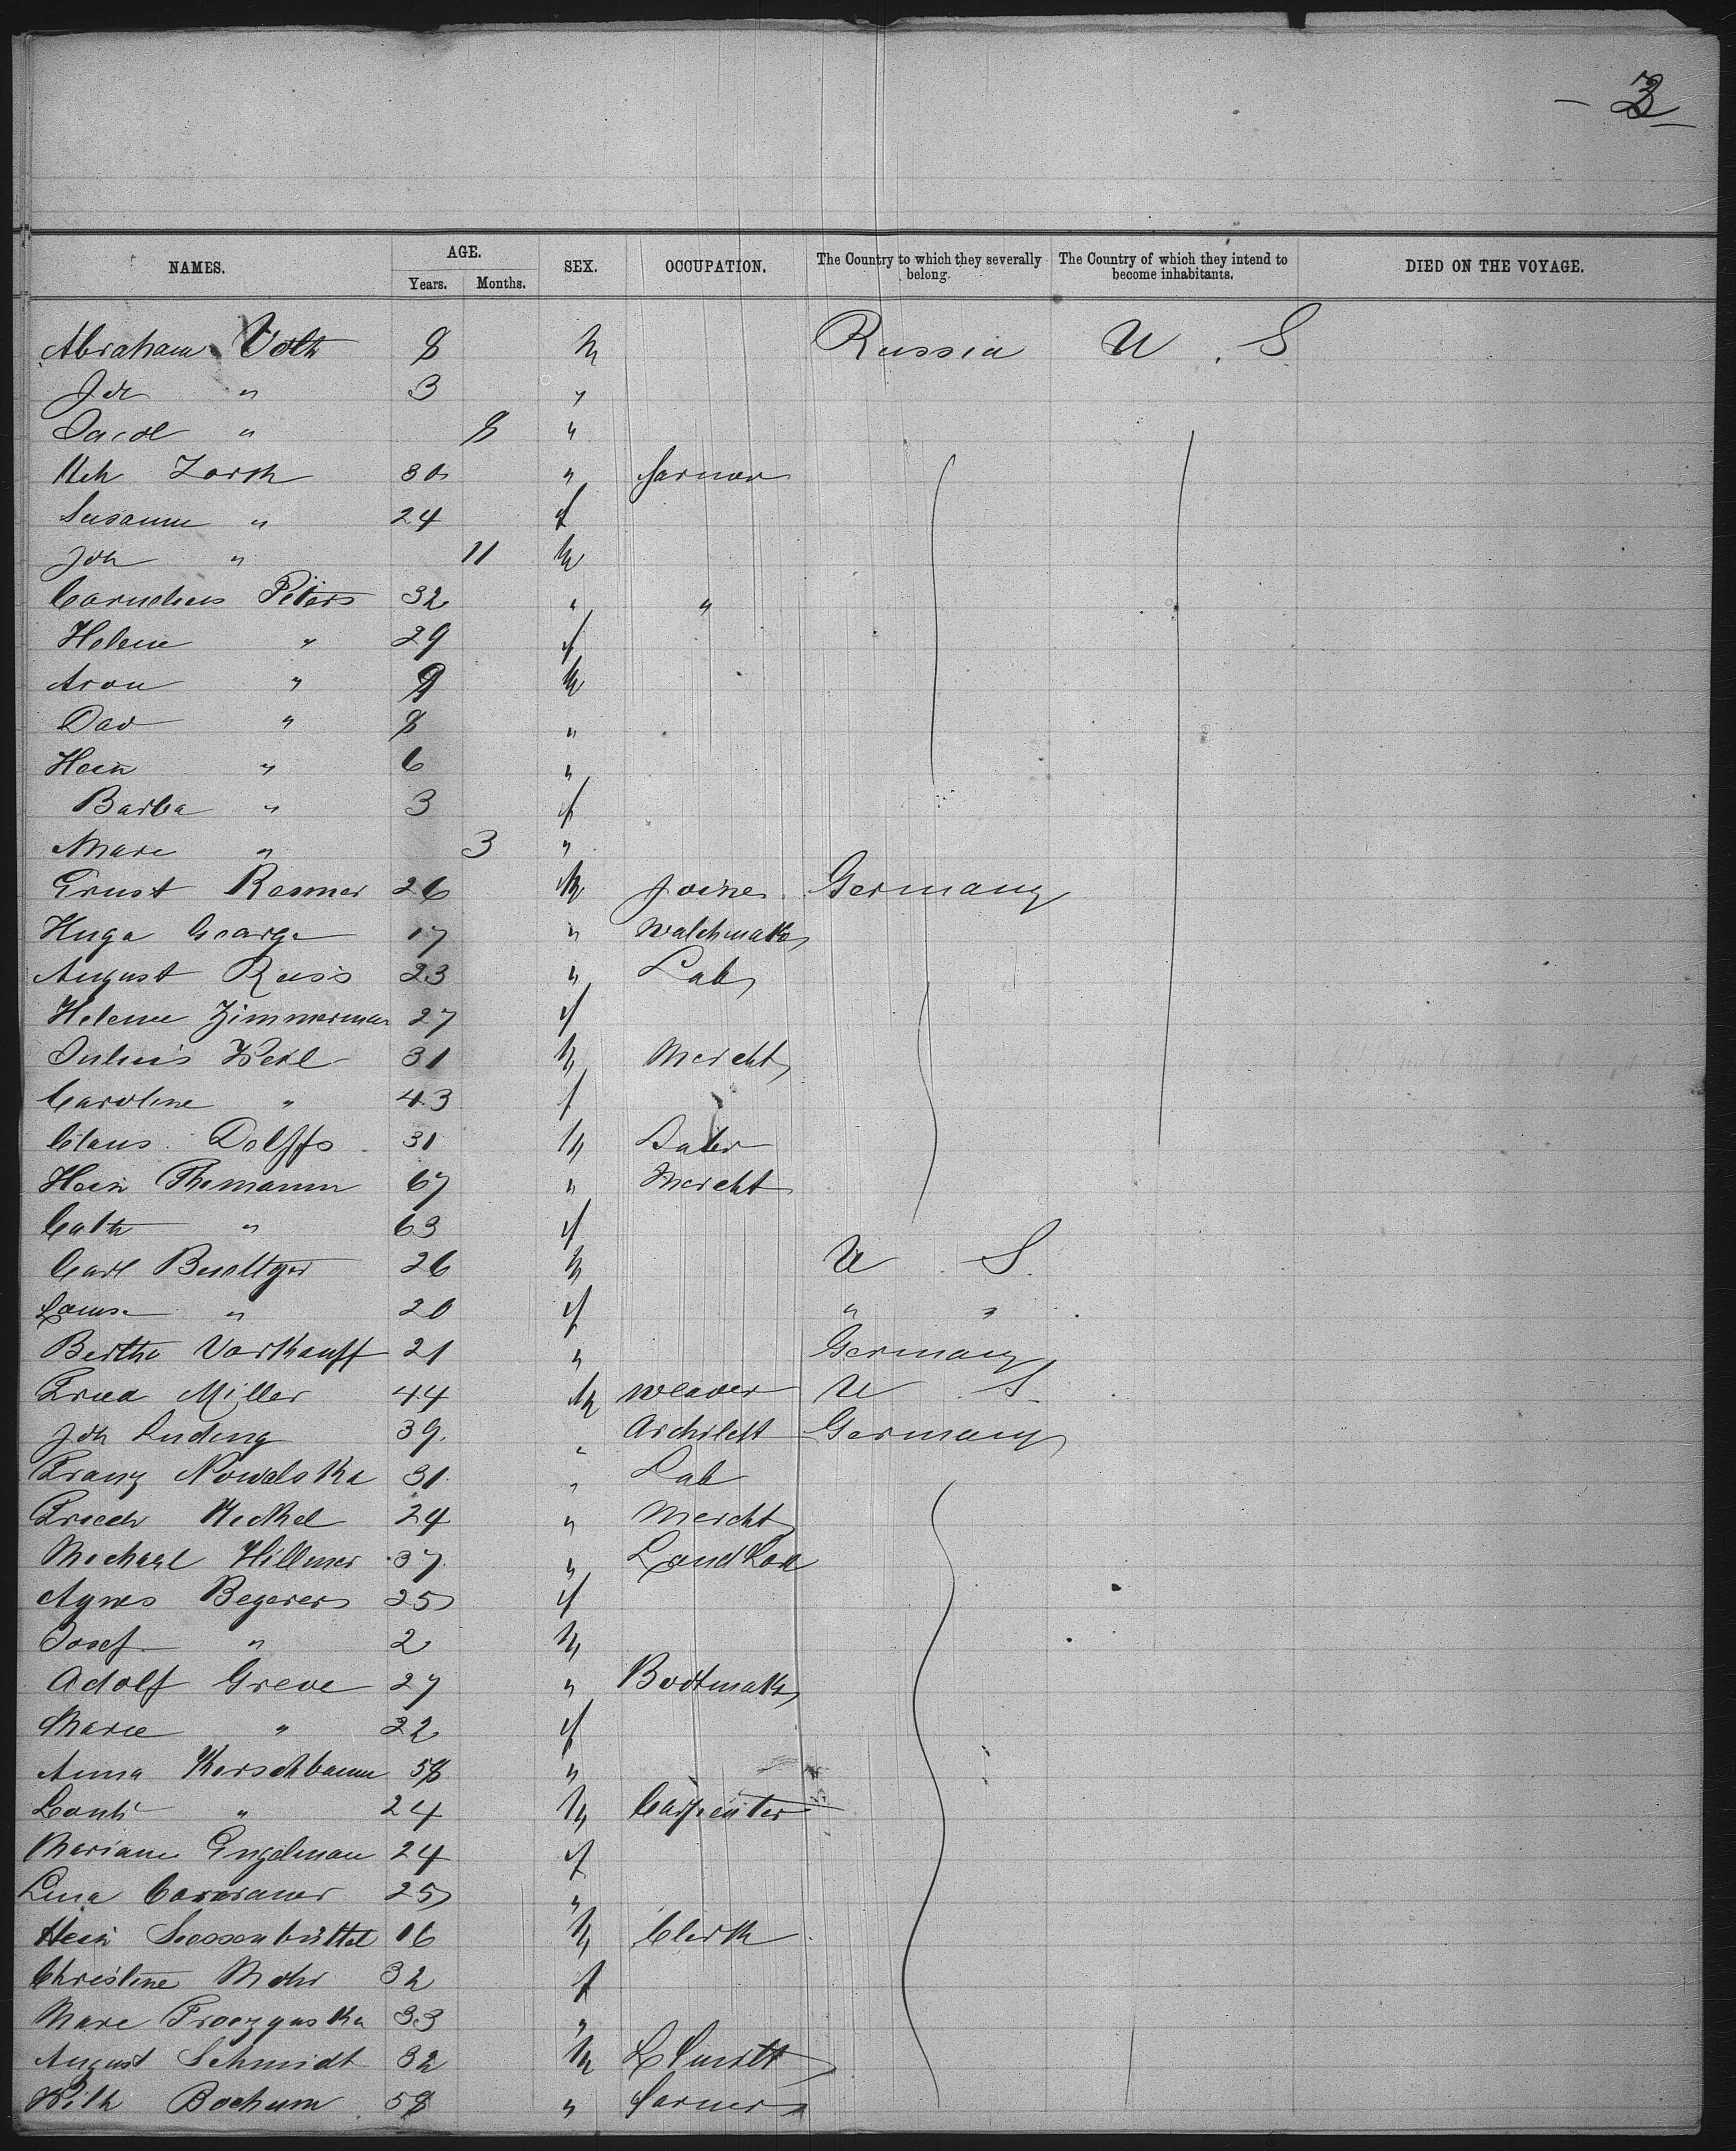 - 3 -
NAMES. AGE. Years. Months. SEX. OCCUPATION. The Country to which they severally belong. The Country of which they intend to become inhabitants. DIED ON THE VOYAGE.
Abraham Voth 8 m Russia U. S
Joh " 3 "
Jacob " 8 "
30 " farmer
Susanne " 24 f
Joh " 11 m
Cornelius Peters 32 " "
Helene " 29 f
Aron " 9 m
Dav " 8 "
Hein " 6 "
Barba " 3 f
Marie " 3 "
Ernst 26 m Joiner Germany
Hugo George 17 " Watchmak
August Reiss 23 " Lab
Helene Zimmerman 27 f
Julius 31 m Mercht
Caroline " 43 f
Claus Dolffs 31 m
Hein Themann 67 " Mercht
Cath " 63 f
Carl 26 m U S.
Louise " 20 f " "
Bertha Vorkauff 21 " Germany
Fried Miller 44 m weaver U S
Joh Luding 39 " Architekt Germany
Franz Nowalska 31 " Lab
Friedr Heckel 24 " Mercht
Michael Hillmer 37 "
Agnes 25 f
Josef " 2 m
Adolf Greve 27 " Bootmak
Marie " 22 f
Anna Kerschbaum 58 "
" 24 m Carpenter
Mariane Engelman 24 f
Lina 25 "
Hein 16 m Clerk
Christine Mohr 32 f
Marie 33 "
August Schmidt 32 m
Wilh Bochum 58 " farmer